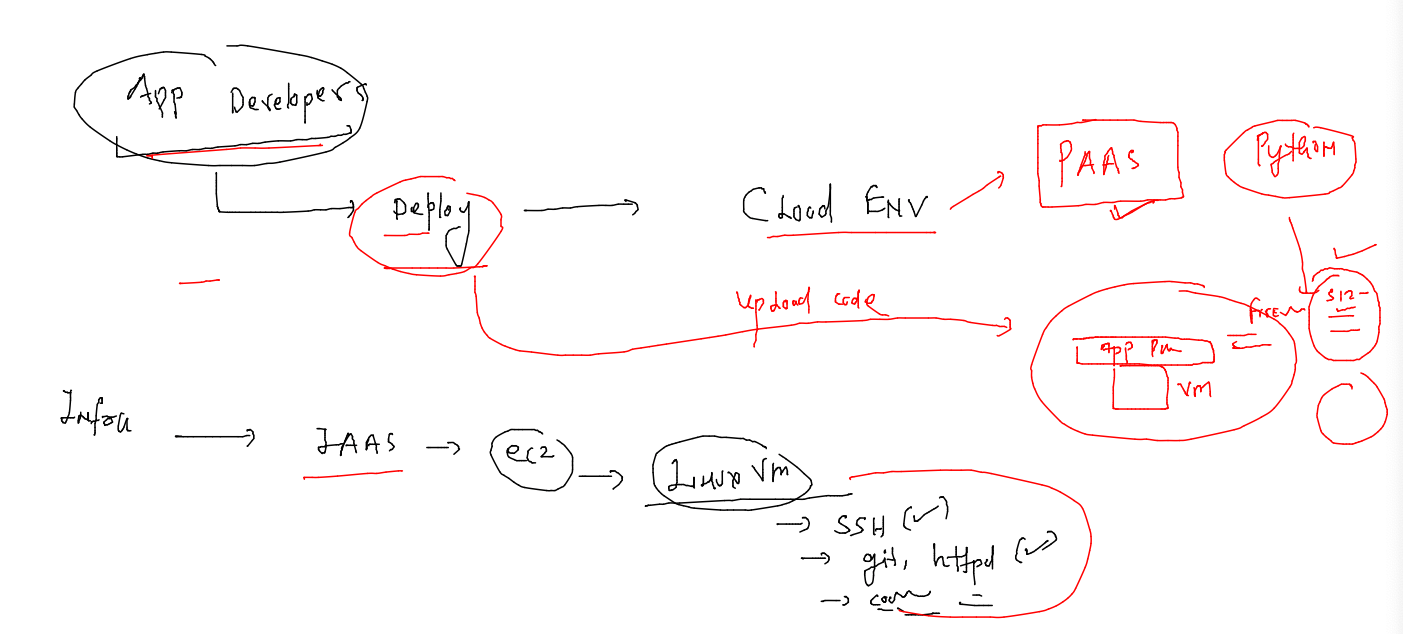 App Developers
Deploy
Cloud ENV
PAAS
Python
Upload code
512-
App Run
VM
Infra
IAAS
ec2
Linux VM
SSH (✓)
git, httpd (✓)